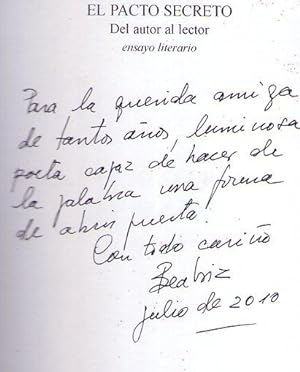 EL PACTO SECRETO
Del autor al lector
ensayo literario
Para la querida amiga
de tantos años, luminosa
poeta capaz de hacer de
la palabra una forma
de abrir puerta.
Con todo cariño
Beatriz
julio de 2010